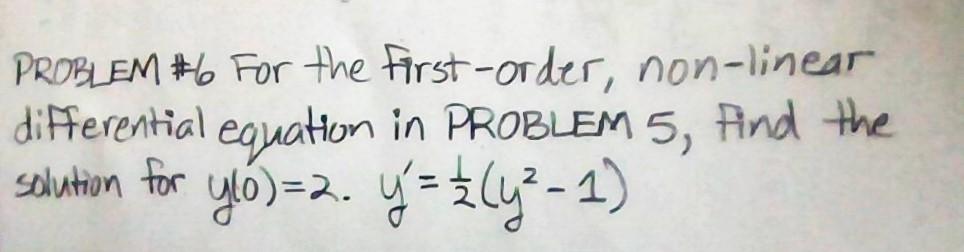 PROBLEM #6 For the first-order, non-linear
differential equation in PROBLEM 5, Find the
solution for y(0)=2. y'=½(y²-1)